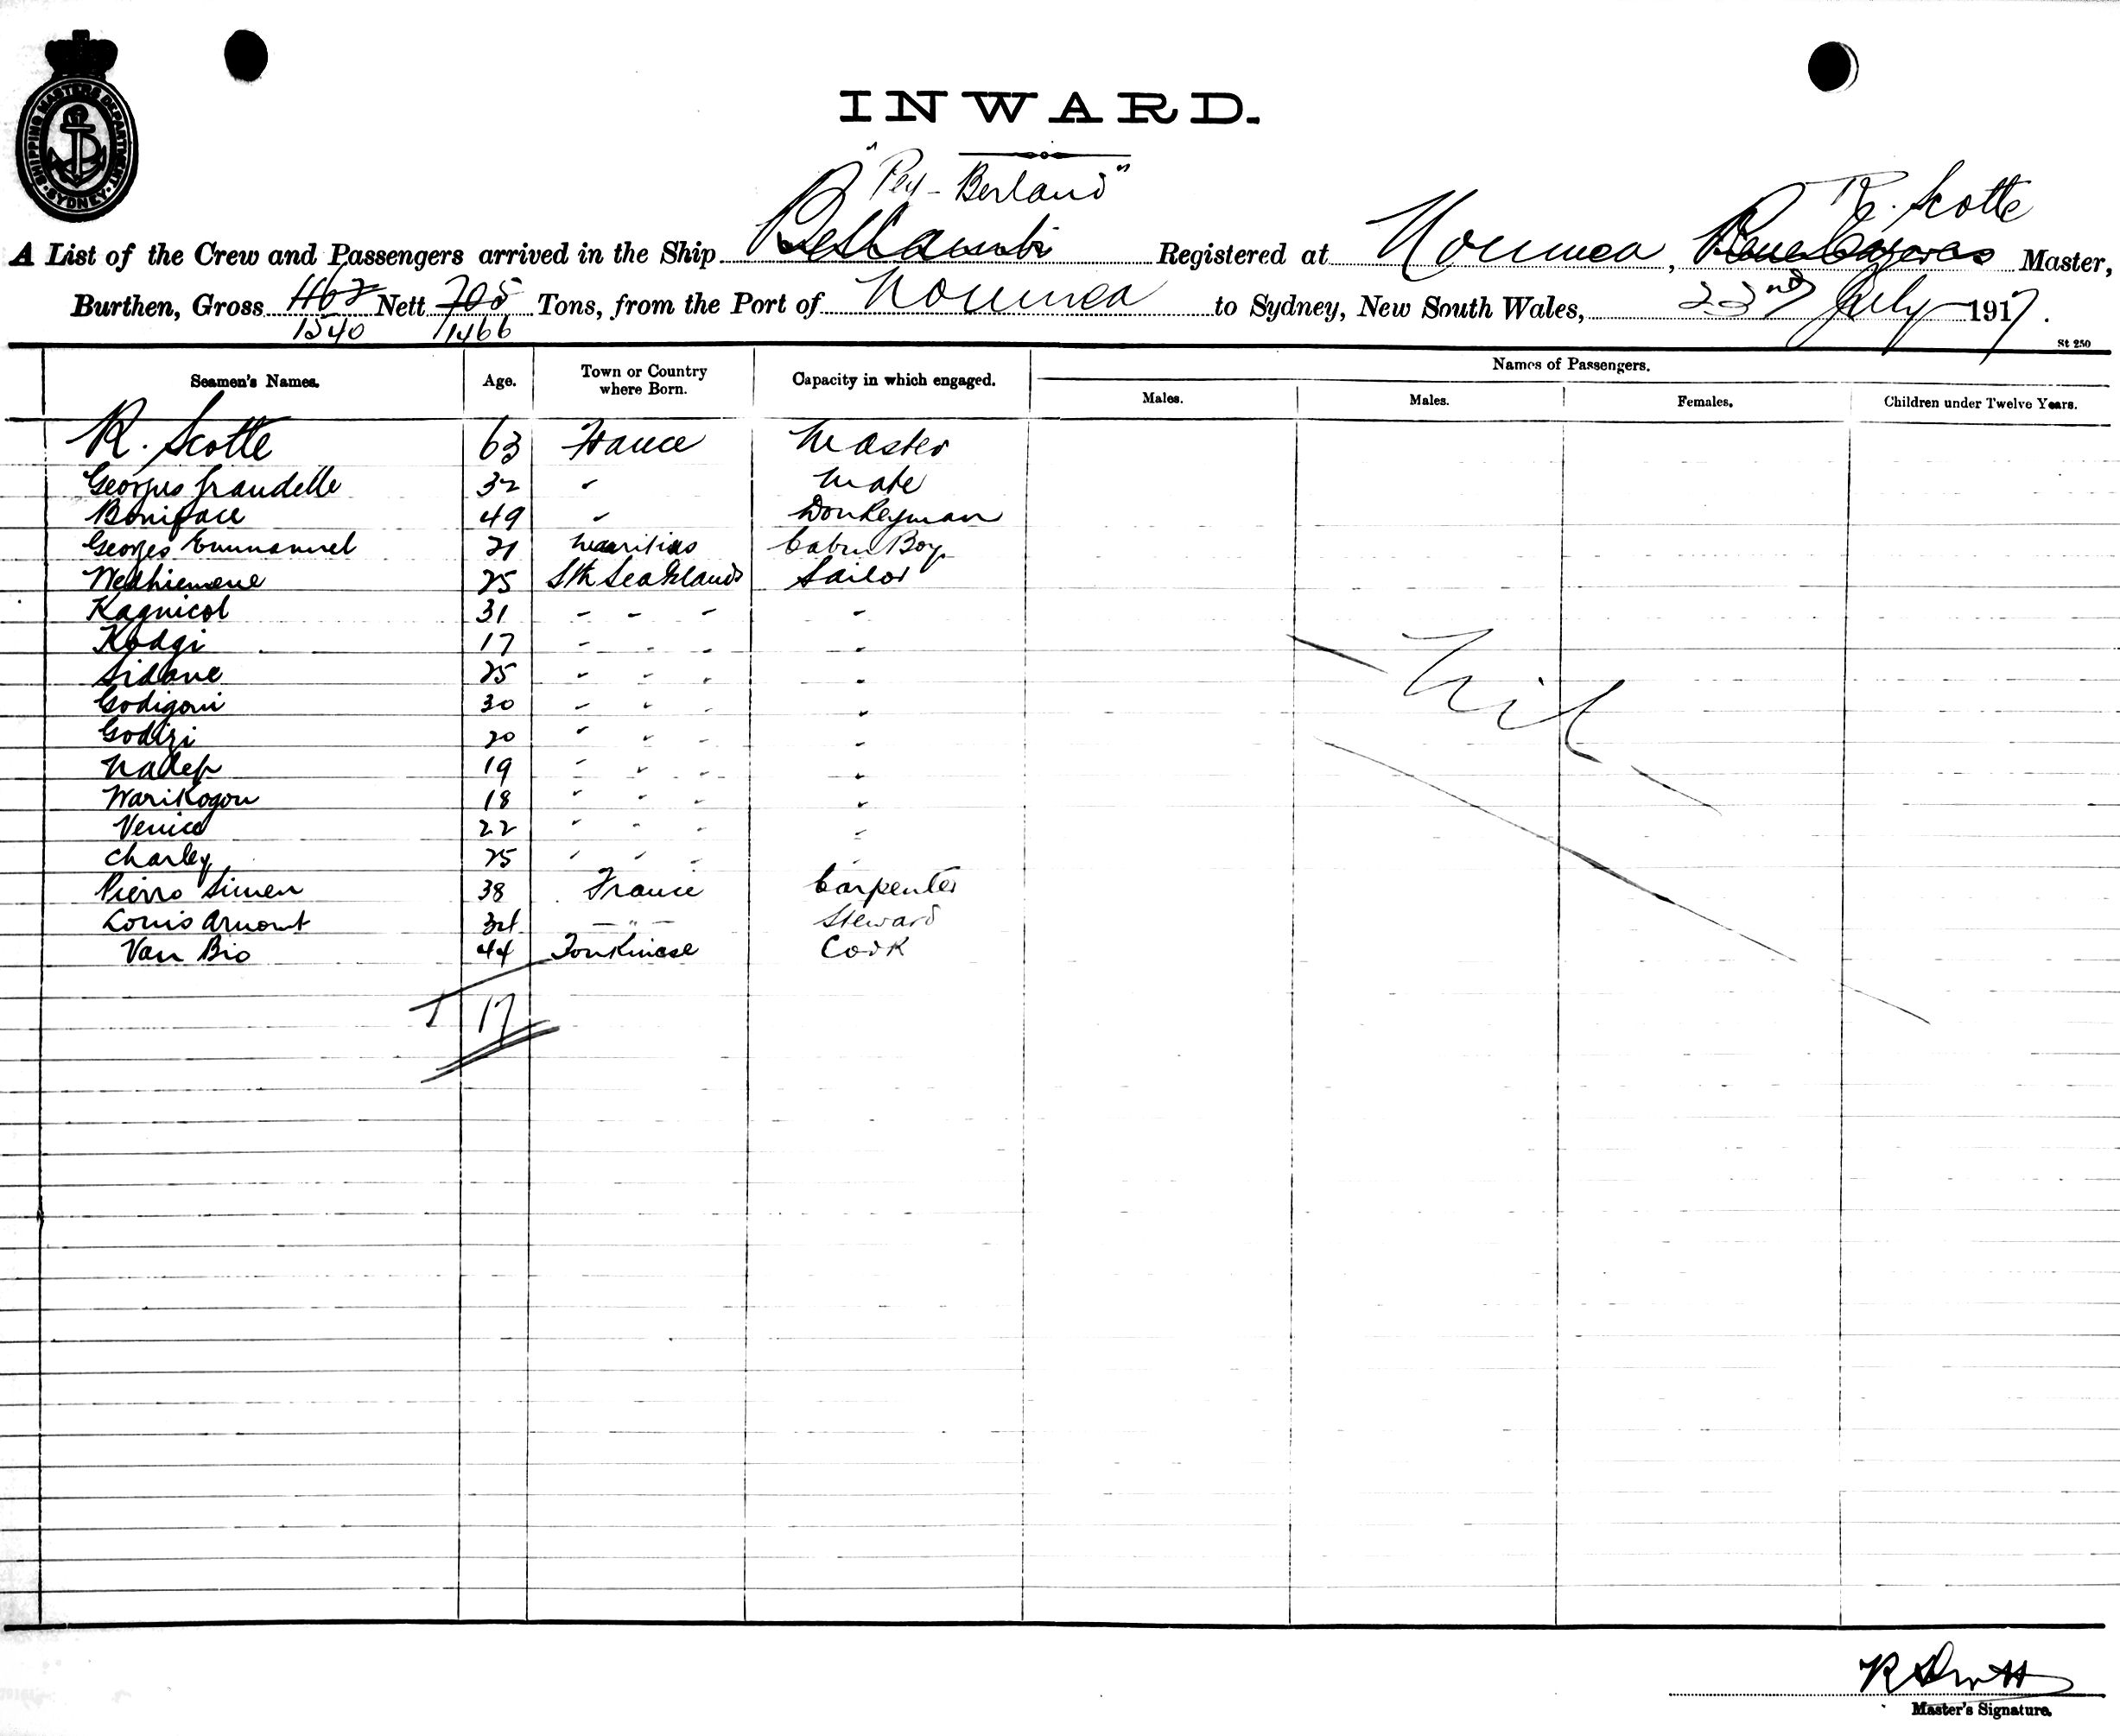 SHIPPING MASTERS DEPARTMENT
SYDNEY
INWARD.
"Pey-Berland"
R. Scotte
A List of the Crew and Passengers arrived in the Ship Bellambi Registered at Noumea, Master,
Burthen, Gross Nett 705 Tons, from the Port of Noumea to Sydney, New South Wales, 22nd July 1917.
1540 1466
St 250
Seamen's Names. Age. Town or Country where Born. Capacity in which engaged. Names of Passengers.
Males. Males. Females. Children under Twelve Years.
R. Scotte 63 France Master
Georges Grandelle 32 " Mate
Boniface 49 " Donkeyman
Georges Emmanuel 21 Mauritius Cabin Boy
Wedhiemene 25 Sth Sea Islands Sailor
Kagnicol 31 - - - -
Kodgi 17 - - - -
Sidane 25 - - - -
Godigoni 30 - - - -
Godizi 20 - - - -
Nadep 19 - - - -
Warikogou 18 - - - -
Venice 22 - - - -
Charley 25 - - - -
Pierro Simen 38 France Carpenter
Louis Arnout 34 - " - Steward
Van Bio 44 Tonkinese Cook
Nil
T 17
R Scotte
Master's Signature.